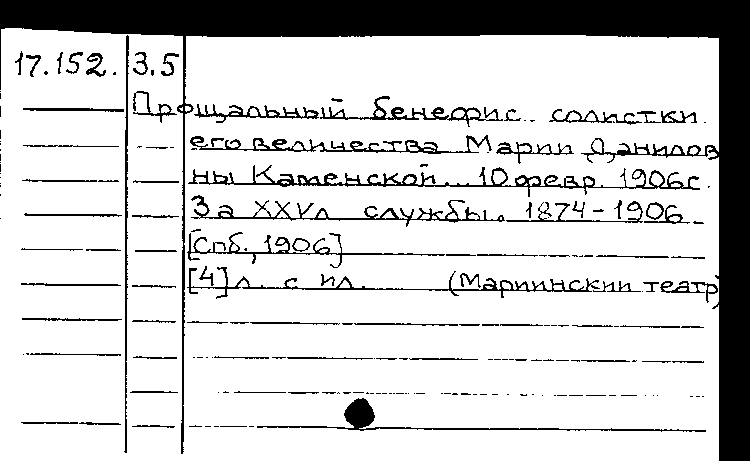 17.152. 3.5
Прощальный бенефис солистки
его величества Марии Данилов
ны Каменской... 10 февр. 1906г.
За XXVл службы. 1874-1906
[Спб., 1906]
[4]л. с ил. (Мариинский театр)